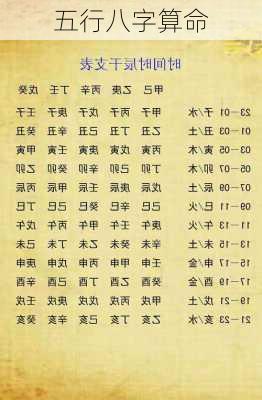 五行八字算命
时间时辰干支表
甲己 乙庚 丙辛 丁壬 戊癸
23－01 子/水 甲子 丙子 戊子 庚子 壬子
01－03 丑/土 乙丑 丁丑 己丑 辛丑 癸丑
03－05 寅/木 丙寅 戊寅 庚寅 壬寅 甲寅
05－07 卯/木 丁卯 己卯 辛卯 癸卯 乙卯
07－09 辰/土 戊辰 庚辰 壬辰 甲辰 丙辰
09－11 巳/火 己巳 辛巳 癸巳 乙巳 丁巳
11－13 午/火 庚午 壬午 甲午 丙午 戊午
13－15 未/土 辛未 癸未 乙未 丁未 己未
15－17 申/金 壬申 甲申 丙申 戊申 庚申
17－19 酉/金 癸酉 乙酉 丁酉 己酉 辛酉
19－21 戌/土 甲戌 丙戌 戊戌 庚戌 壬戌
21－23 亥/水 乙亥 丁亥 己亥 辛亥 癸亥